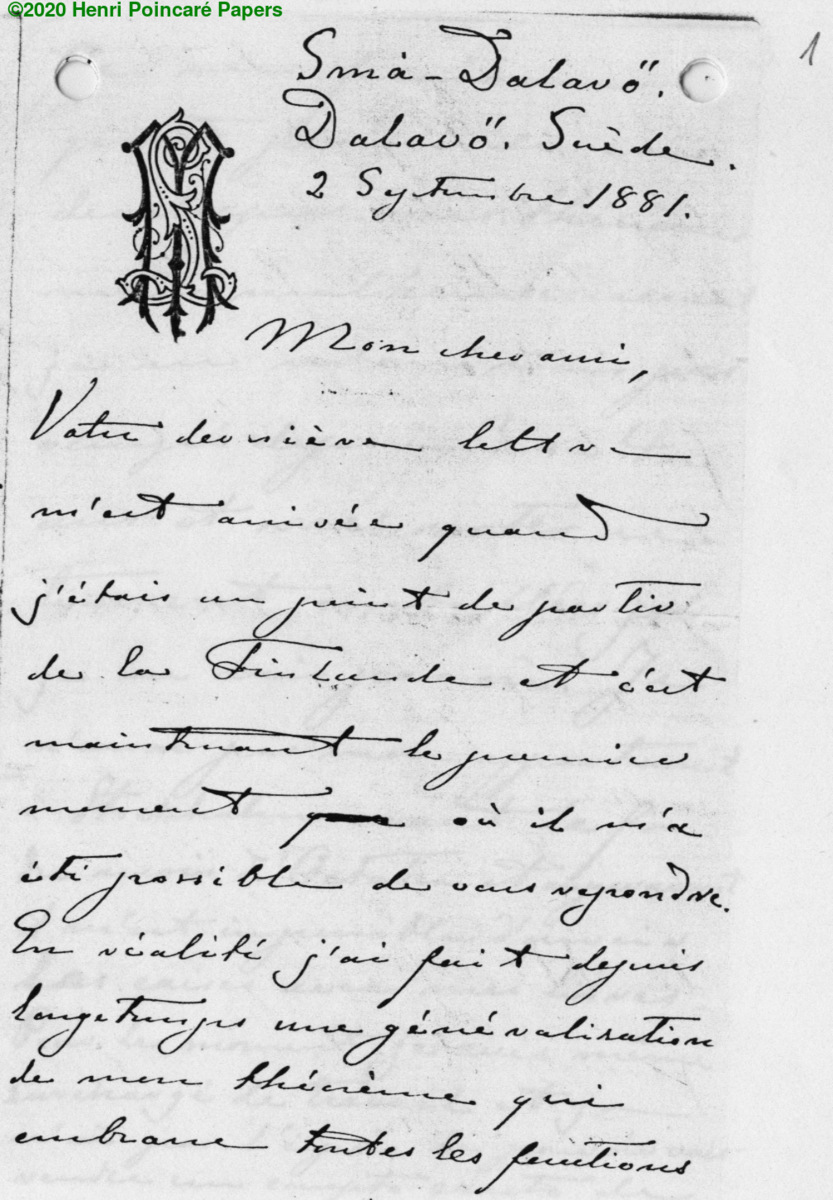 ©2020 Henri Poincaré Papers
1
Små-Dalarö.
Dalarö. Suède.
2 Septembre 1881.
Mon cher ami,
Votre dernière lettre
m'est arrivée quand
j'étais au point de partir
de la Finlande et c'est
maintenant le premier
moment où il m'a
été possible de vous repondre.
En réalité j'ai fait depuis
longetemps une généralisation
de mon théorème qui
embrasse toutes les fonctions